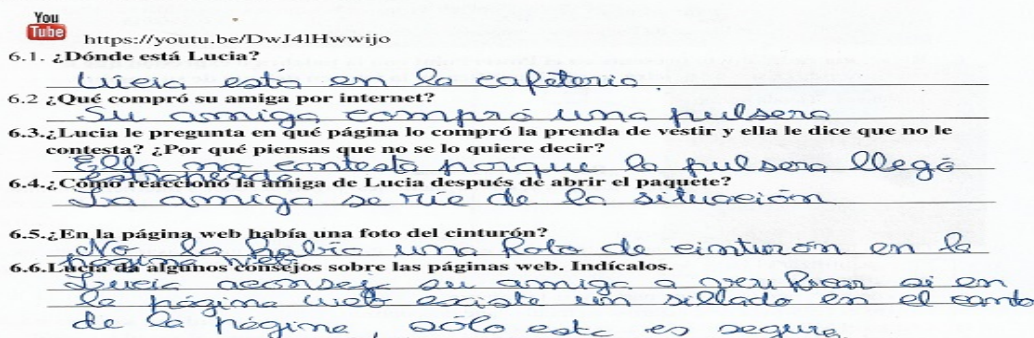 You
Tube
https://youtu.be/DwJ4lHwwijo
6.1. ¿Dónde está Lucia?
Lucia está en la cafeteria.
6.2 ¿Qué compró su amiga por internet?
Su amiga compró una pulsera
6.3.¿Lucia le pregunta en qué página lo compró la prenda de vestir y ella le dice que no le
contesta? ¿Por qué piensas que no se lo quiere decir?
Ella no contestó porque la pulsera llegó
estropeada
6.4.¿Cómo reaccionó la amiga de Lucia después de abrir el paquete?
La amiga se ríe de la situación
6.5.¿En la página web había una foto del cinturón?
No la había una foto de cinturon en la
página web
6.6.Lucia da algunos consejos sobre las páginas web. Indícalos.
Lucia aconsej su amiga a verificar si en
la página web existe un sillado en el canto
de la página, sólo este es segura